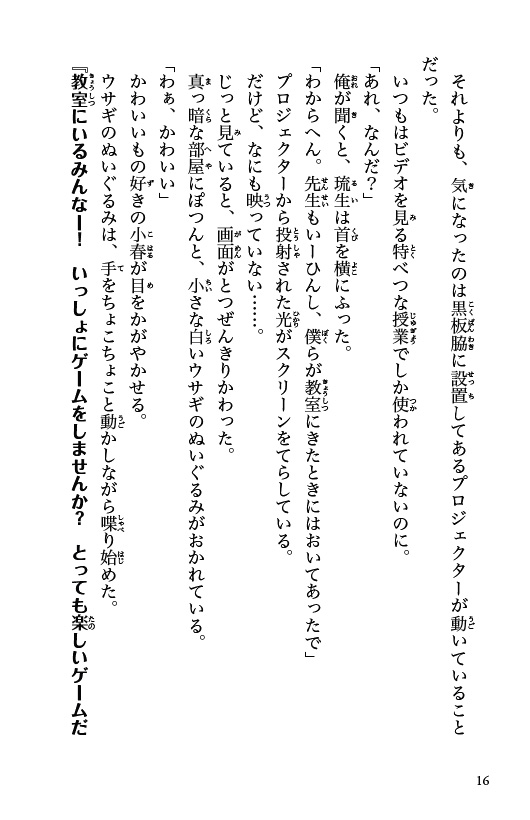 それよりも、気になったのは黒板脇に設置してあるプロジェクターが動いていること
だった。
いつもはビデオを見る特べつな授業でしか使われていないのに。
「あれ、なんだ？」
俺が聞くと、琉生は首を横にふった。
「わからへん。先生もいーひんし、僕らが教室にきたときにはおいてあったで」
プロジェクターから投射された光がスクリーンをてらしている。
だけど、なにも映っていない……。
じっと見ていると、画面がとつぜんきりかわった。
真っ暗な部屋にぽつんと、小さな白いウサギのぬいぐるみがおかれている。
「わぁ、かわいい」
かわいいもの好きの小春が目をかがやかせる。
ウサギのぬいぐるみは、手をちょこちょこと動かしながら喋り始めた。
『教室にいるみんなー！　いっしょにゲームをしませんか？　とっても楽しいゲームだ
16